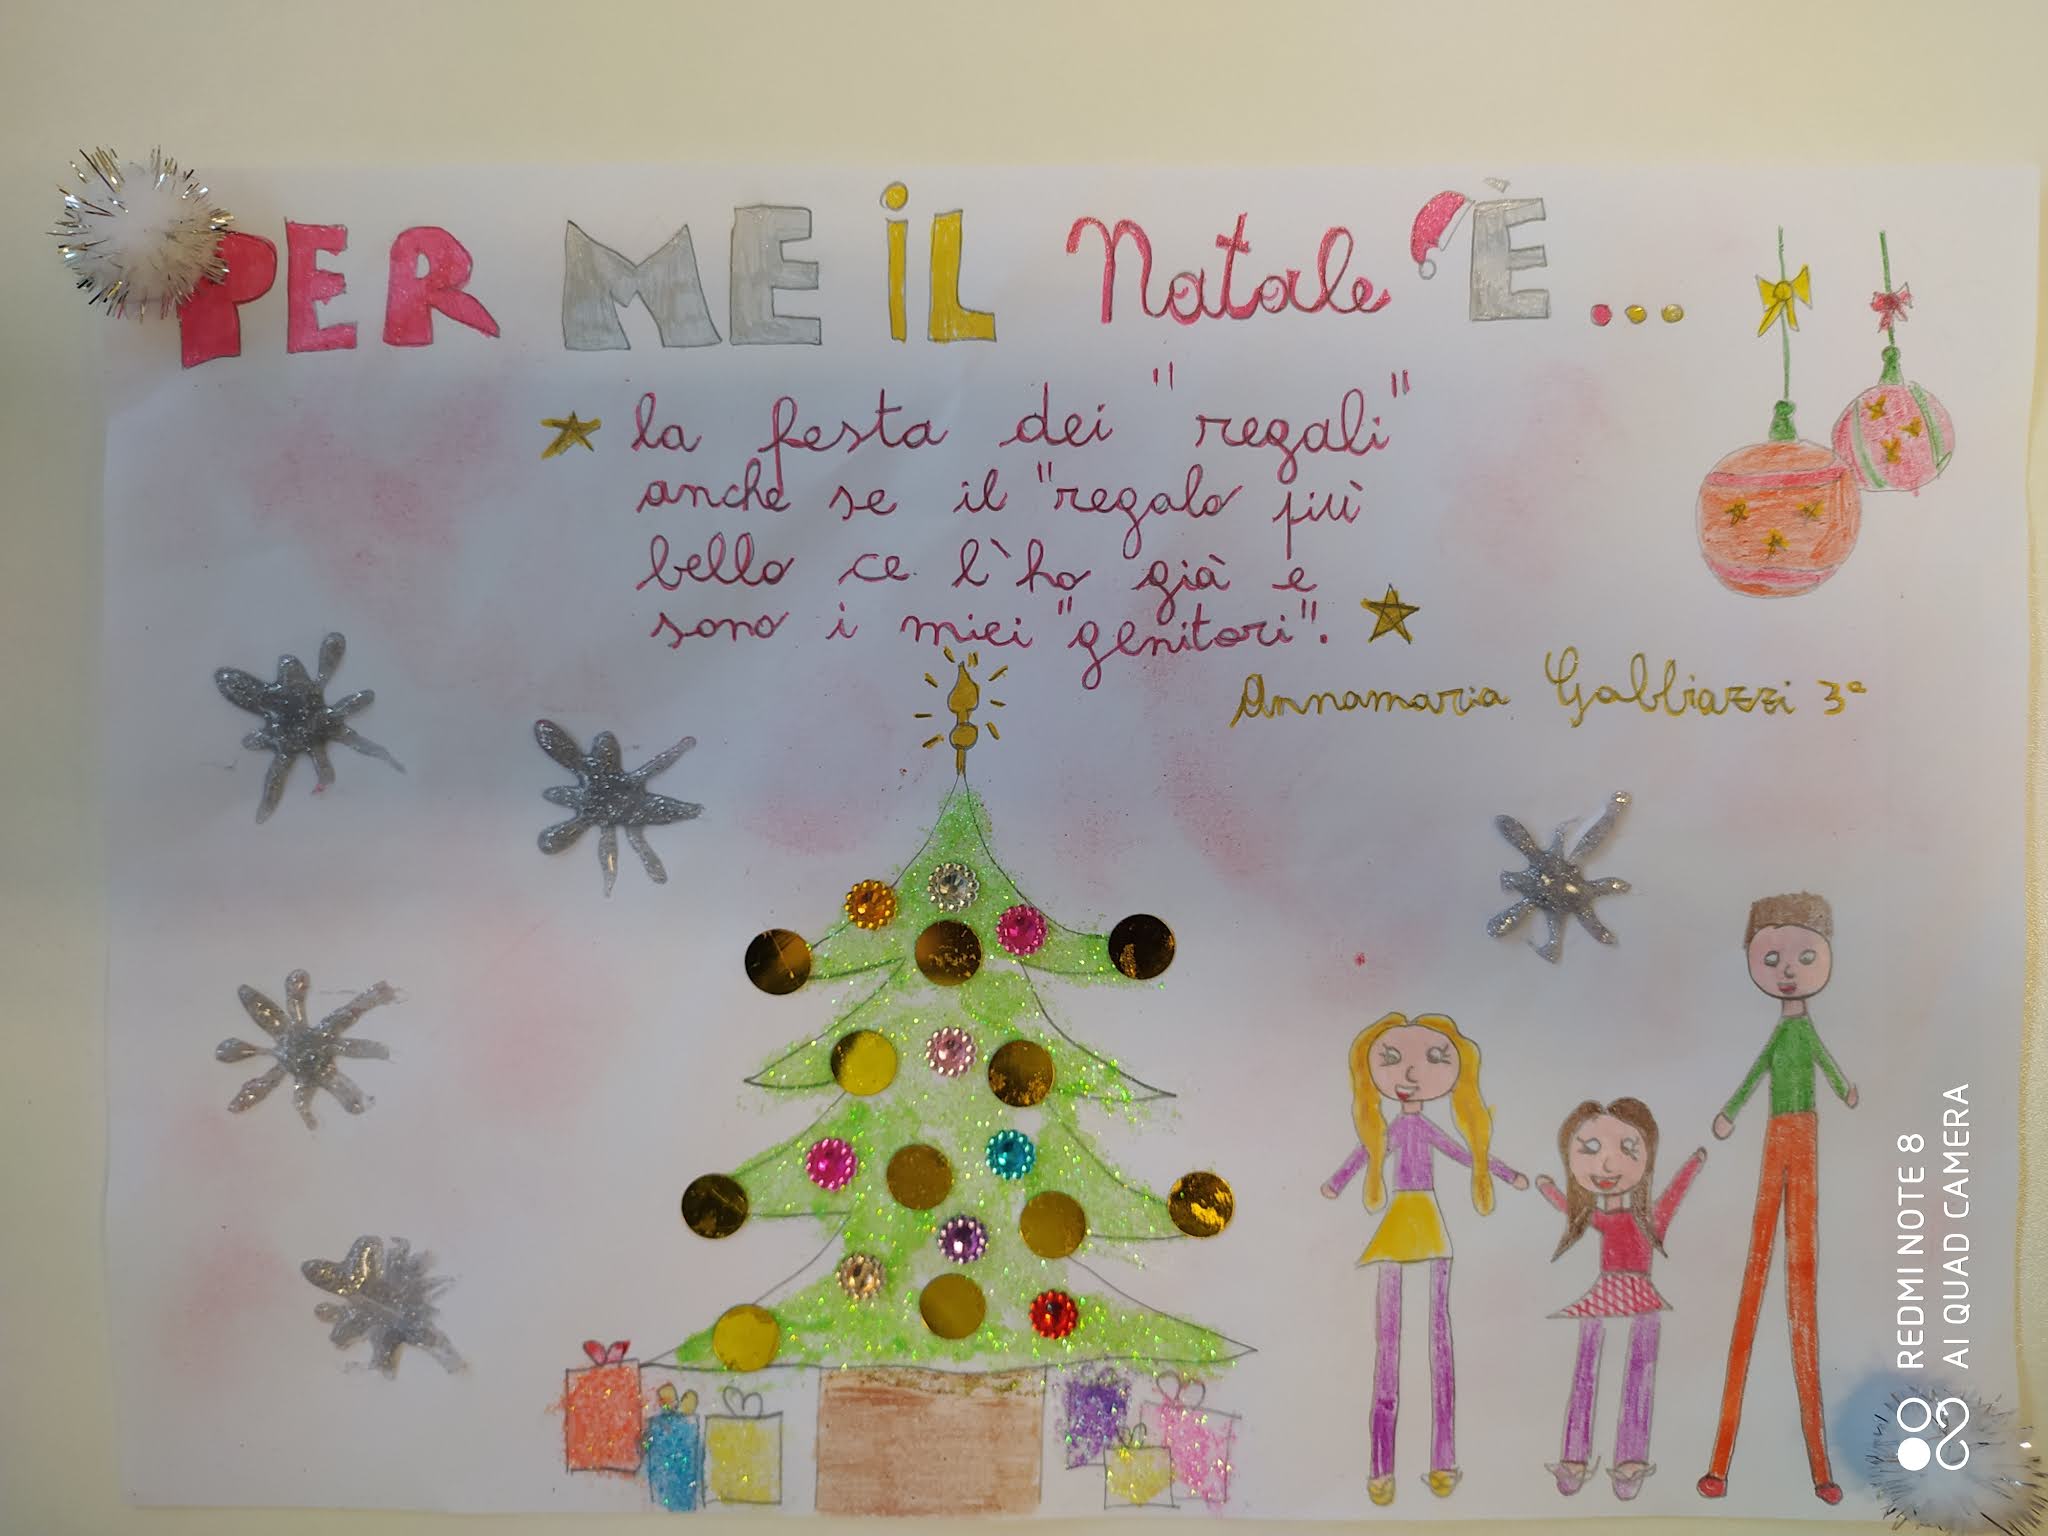 PER ME iL Natale È...
la festa dei "regali"
anche se il "regalo più
bello ce l'ho già e
sono i miei "genitori".
Annamaria Gabbiazzi 3ª
REDMI NOTE 8
AI QUAD CAMERA